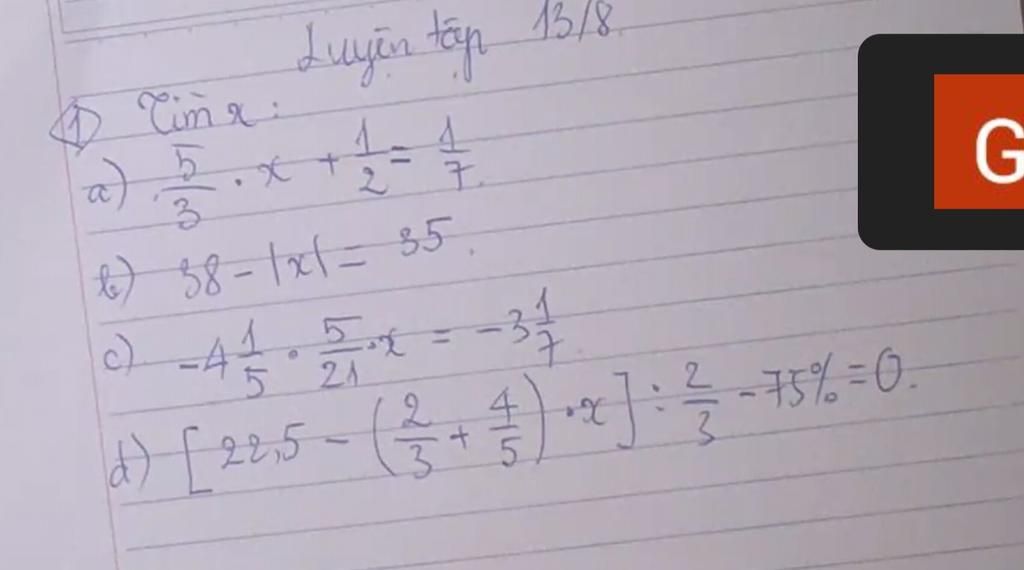 Luyện tập 13/8
① Tìm x:
a) 5/3 . x + 1/2 = 1/7.
b) 38 - |x| = 35.
c) -4 1/5 . 5/21 . x = -3 1/7.
d) [22,5 - (2/3 + 4/5) . x] : 2/3 - 75% = 0.
G